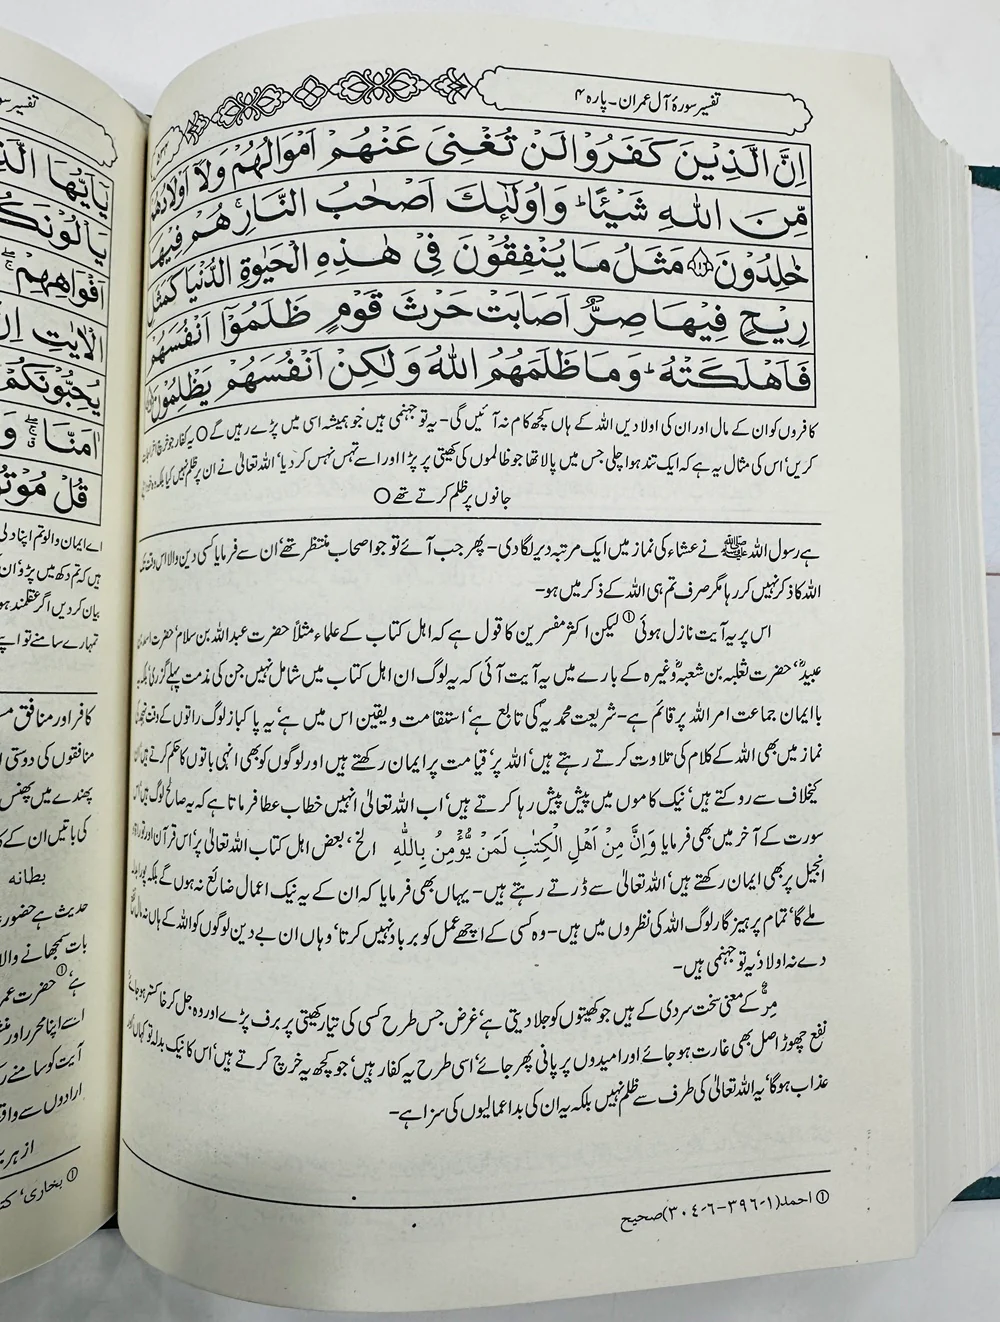 تفسیر سورۂ آل عمران - پارہ ۴
اِنَّ الَّذِيْنَ كَفَرُوْا لَنْ تُغْنِيَ عَنْهُمْ اَمْوَالُهُمْ وَلَآ اَوْلَادُهُمْ
مِّنَ اللّٰهِ شَيْـًٔا ؕ وَاُولٰٓئِكَ اَصْحٰبُ النَّارِ ۚ هُمْ فِيْهَا
خٰلِدُوْنَ ﴿۱۱۶﴾ مَثَلُ مَا يُنْفِقُوْنَ فِيْ هٰذِهِ الْحَيٰوةِ الدُّنْيَا كَمَثَلِ
رِيْحٍ فِيْهَا صِرٌّ اَصَابَتْ حَرْثَ قَوْمٍ ظَلَمُوْٓا اَنْفُسَهُمْ
فَاَهْلَكَتْهُ ؕ وَمَا ظَلَمَهُمُ اللّٰهُ وَلٰكِنْ اَنْفُسَهُمْ يَظْلِمُوْنَ
کافروں کو ان کے مال اور ان کی اولادیں اللہ کے ہاں کچھ کام نہ آئیں گی - یہ تو جہنمی ہیں جو ہمیشہ اسی میں پڑے رہیں گے ○ یہ کفار جو خرچ
کریں' اس کی مثال یہ ہے کہ ایک تند ہوا چلی جس میں پالا تھا جو ظالموں کی کھیتی پر پڑا اور اسے تہس نہس کر دیا' اللہ تعالیٰ نے ان پر ظلم نہیں کیا بلکہ
جانوں پر ظلم کرتے تھے ○
ہے رسول اللہ ﷺ نے عشاء کی نماز میں ایک مرتبہ دیر لگا دی - پھر جب آئے تو جو اصحاب منتظر تھے' ان سے فرمایا کسی دین والا اس وقت
اللہ کا ذکر نہیں کر رہا مگر صرف تم ہی اللہ کے ذکر میں ہو -
اس پر یہ آیت نازل ہوئی ① لیکن اکثر مفسرین کا قول ہے کہ اہل کتاب کے علماء مثلاً حضرت عبداللہ بن سلام' حضرت اسد بن
عبیدؓ' حضرت ثعلبہ بن شعبہؓ وغیرہ کے بارے میں یہ آیت آئی کہ یہ لوگ ان اہل کتاب میں شامل نہیں جن کی مذمت پہلے گزری' بلکہ یہ
باایمان جماعت امر اللہ پر قائم ہے - شریعت محمدیہؐ کی تابع ہے' استقامت و یقین اس میں ہے' یہ پاکباز لوگ راتوں کے وقت تہجد کی
نماز میں بھی اللہ کے کلام کی تلاوت کرتے رہتے ہیں' اللہ پر' قیامت پر ایمان رکھتے ہیں اور لوگوں کو بھی انہی باتوں کا حکم کرتے ہیں' ان
کیخلاف سے روکتے ہیں' نیک کاموں میں پیش پیش رہا کرتے ہیں' اب اللہ تعالیٰ انہیں خطاب عطا فرماتا ہے کہ یہ صالح لوگ ہیں' اس
سورت کے آخر میں بھی فرمایا وَاِنَّ مِنْ اَهْلِ الْكِتٰبِ لَمَنْ يُّؤْمِنُ بِاللّٰهِ الخ' بعض اہل کتاب اللہ تعالیٰ پر' اس قرآن اور توراۃ و
انجیل پر بھی ایمان رکھتے ہیں' اللہ تعالیٰ سے ڈرتے رہتے ہیں - یہاں بھی فرمایا کہ ان کے یہ نیک اعمال ضائع نہ ہوں گے بلکہ پورا بدلہ
ملے گا' تمام پرہیزگار لوگ اللہ کی نظروں میں ہیں - وہ کسی کے اچھے عمل کو برباد نہیں کرتا' وہاں ان بے دین لوگوں کو اللہ کے ہاں نہ مال نفع
دے نہ اولاد' یہ تو جہنمی ہیں -
صِرٌّ کے معنی سخت سردی کے ہیں جو کھیتوں کو جلا دیتی ہے' غرض جس طرح کسی کی تیار کھیتی پر برف پڑے اور وہ جل کر خاکستر ہو جائے'
نفع چھوڑ اصل بھی غارت ہو جائے اور امیدوں پر پانی پھر جائے' اسی طرح یہ کفار ہیں' جو کچھ یہ خرچ کرتے ہیں' اس کا نیک بدلہ تو کہاں' اور
عذاب ہوگا' یہ اللہ تعالیٰ کی طرف سے ظلم نہیں بلکہ یہ ان کی بداعمالیوں کی سزا ہے -
① احمد (۱-۳۹۶-۶-۳۰۴) صحیح